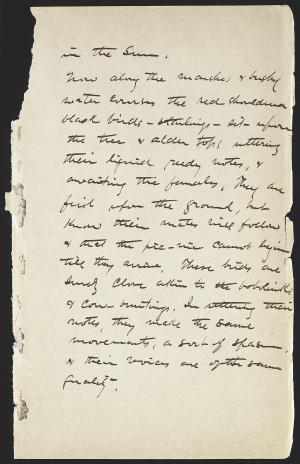 in the Sun.
Now along the marshes & bushy
water courses the red-shouldered
black birds - starlings - sit upon
the tree & alder tops uttering
their liquid reedy notes, &
awaiting the females. They are
first upon the ground, but
know their mates will follow
& that the pic-nic cannot begin
till they arrive. These birds are
surely close akin to the bobolinks
& cow-buntings. In uttering their
notes, they make the same
movements, a sort of spasm
& their voices are of the same
quality.